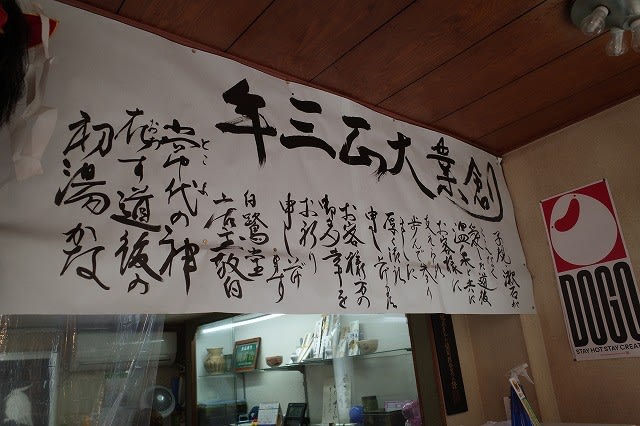 創業大正三年
子規 漱石が
こよなく
愛した道後
温泉と共に
お客様に
支えられ
歩んで
厚く御礼
申し上げます
お客様方の
御多幸を
お祈り
申し上げ
ます
白鷺堂
店主敬白
とこよ
常代の神
在す道後の
初湯かな
DOGO
STAY HOT STAY CREAT